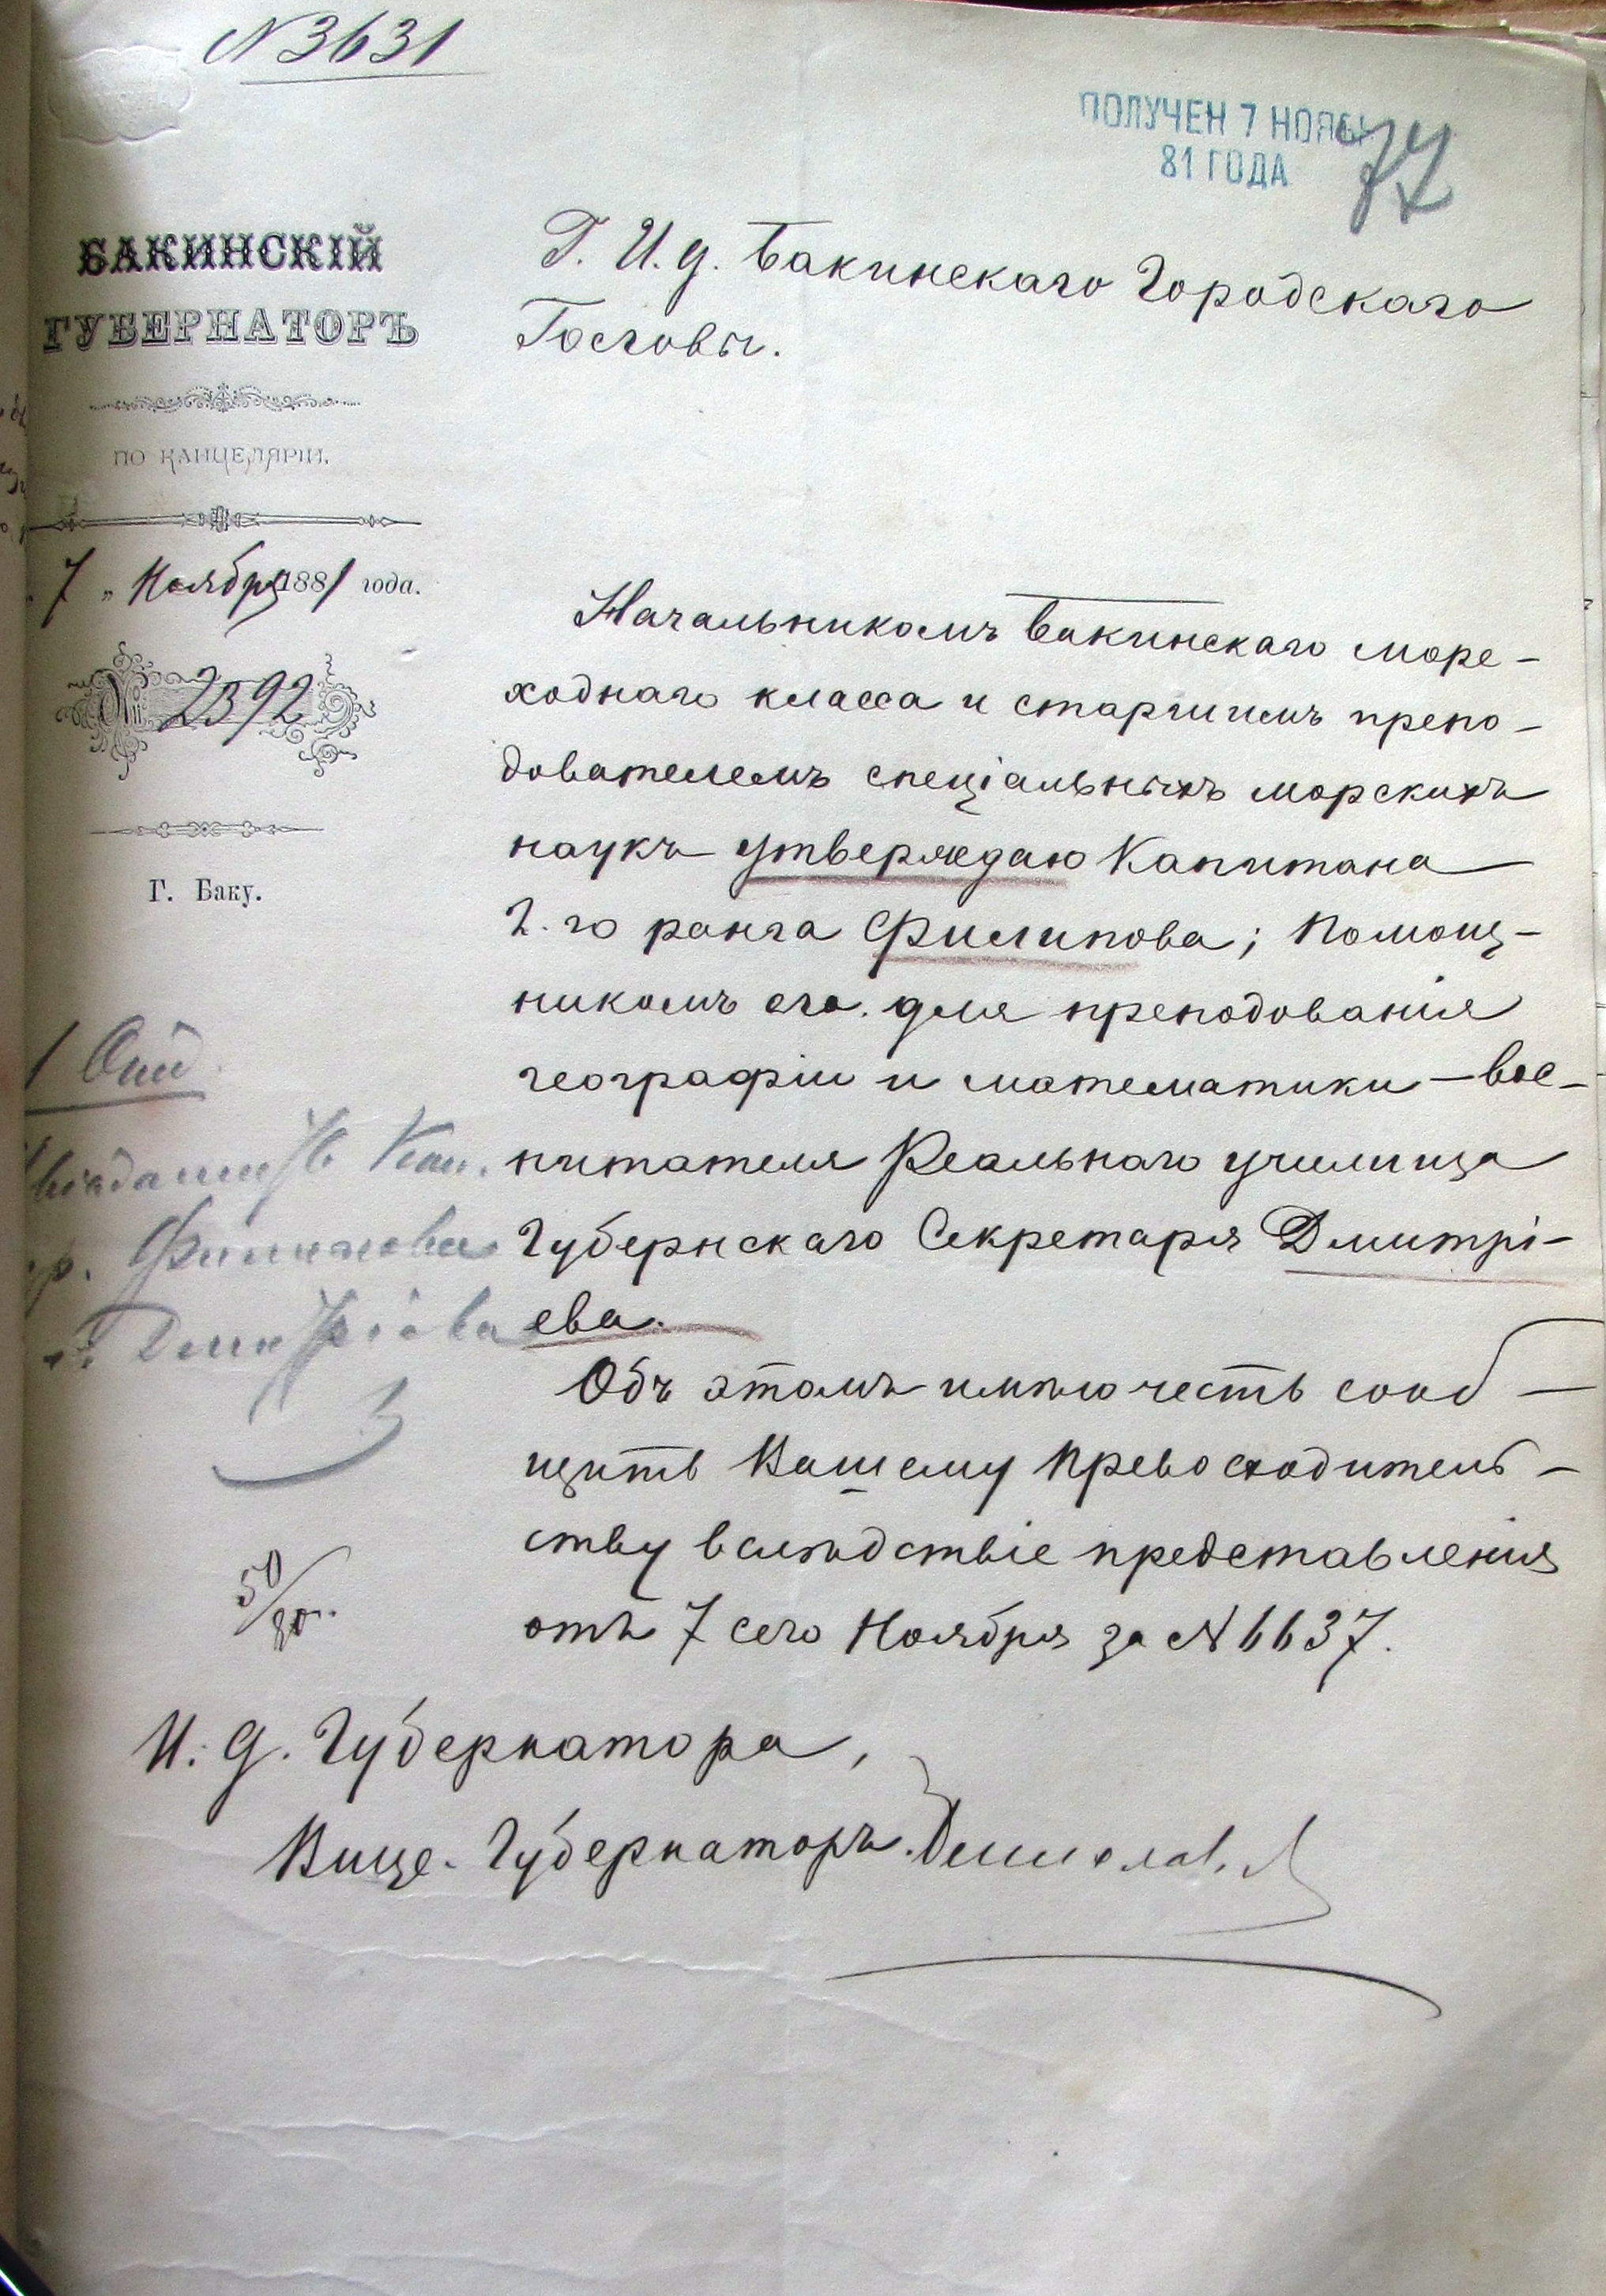 N 3631
ПОЛУЧЕН 7 НОЯБ
81 ГОДА
БАКИНСКІЙ
ГУБЕРНАТОРЪ
ПО КАНЦЕЛЯРІИ.
7 „ Ноября 1881 года.
№ 2392
Г. Баку.
Г. И. д. Бакинскаго Городскаго
Головы.
Начальникомъ Бакинскаго море-
ходнаго класса и старшимъ препо-
дователемъ спеціальныхъ морскихъ
наукъ утверждаю Капитана
2.го ранга Филипова; Помощ-
никомъ его. для преподованія
географіи и математики – вос-
питателя Реальнаго училища
Губернскаго Секретаря Дмитрі-
ева.
Объ этомъ имѣю честь сооб-
щить Вашему Превосходитель-
ству вслѣдствіе представленія
отъ 7 сего Ноября за N 6637.
Кап.
Филипова
Дмитріева
50/80.
И. д. Губернатора,
Вице-Губернаторъ.